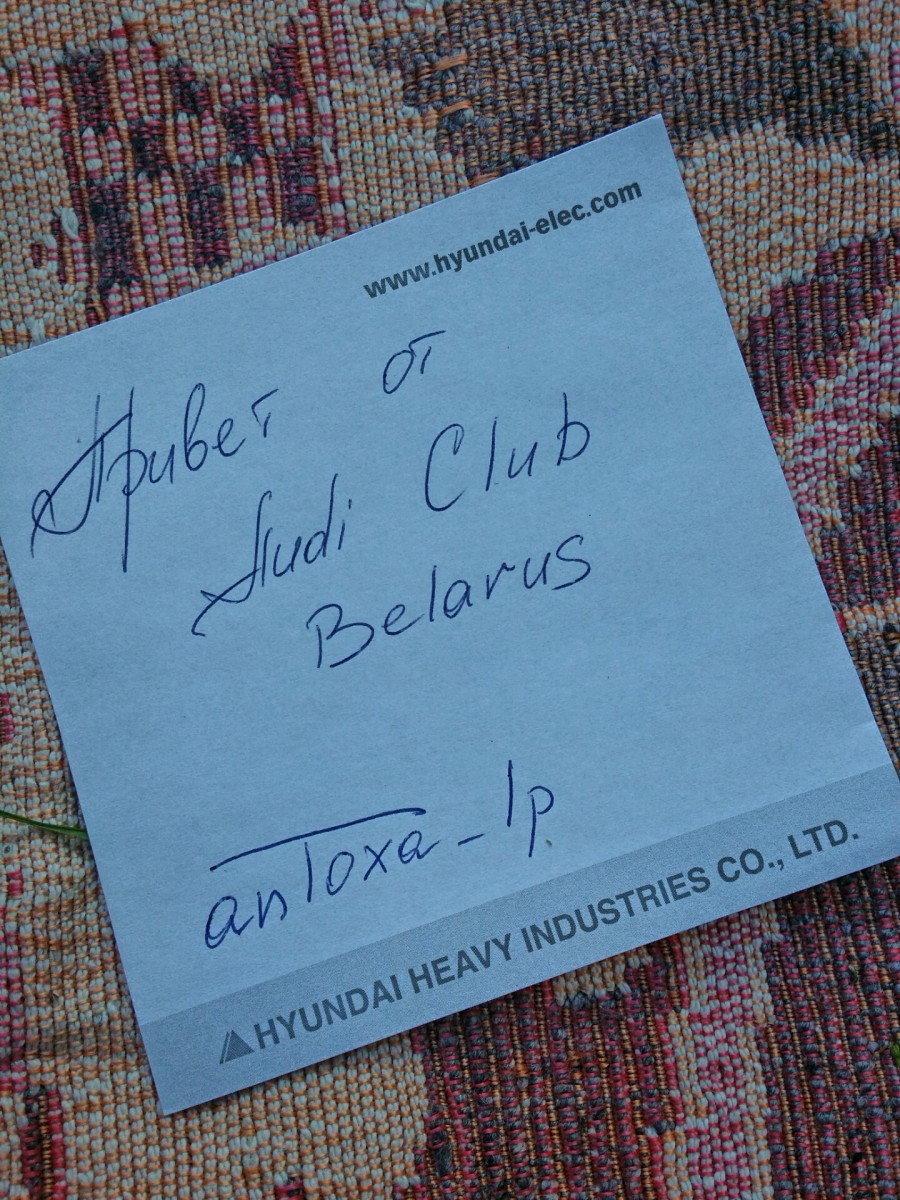 www.hyundai-elec.com
Привет от
Audi Club
Belarus
antoxa_1p
HYUNDAI HEAVY INDUSTRIES CO., LTD.